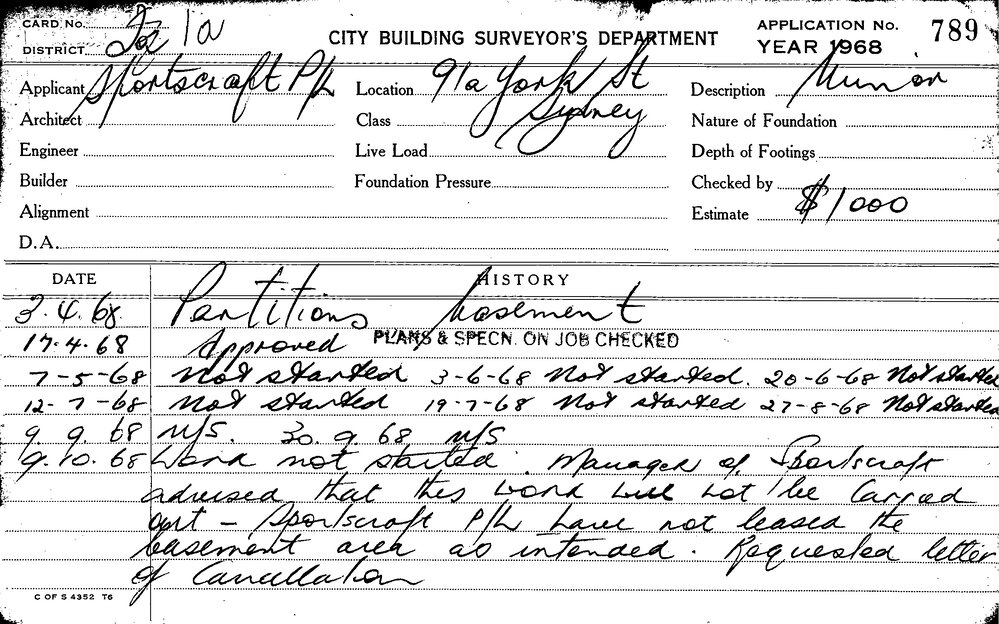 CARD No.
DISTRICT 1a
CITY BUILDING SURVEYOR'S DEPARTMENT
APPLICATION No. 789
YEAR 1968
Applicant Sportscraft P/L
Location 91a York St
Sydney
Description
Architect
Class
Nature of Foundation
Engineer
Live Load
Depth of Footings
Builder
Foundation Pressure
Checked by
Alignment
Estimate $1000
D.A.
DATE
HISTORY
3.4.68 Partitions basement
17.4.68 Approved PLANS & SPECN. ON JOB CHECKED
7-5-68 Not started 3-6-68 Not started. 20-6-68 Not started
12-7-68 Not started 19-7-68 Not started 27-8-68 Not started
9 9. 68 N/S. 30. 9. 68 N/S
9.10.68 Work not started. Manager of Sportscraft
advised that this work will not be carried
out - Sportscraft P/L have not leased the
basement area as intended. Requested letter
of Cancellation
C OF S 4352 T6